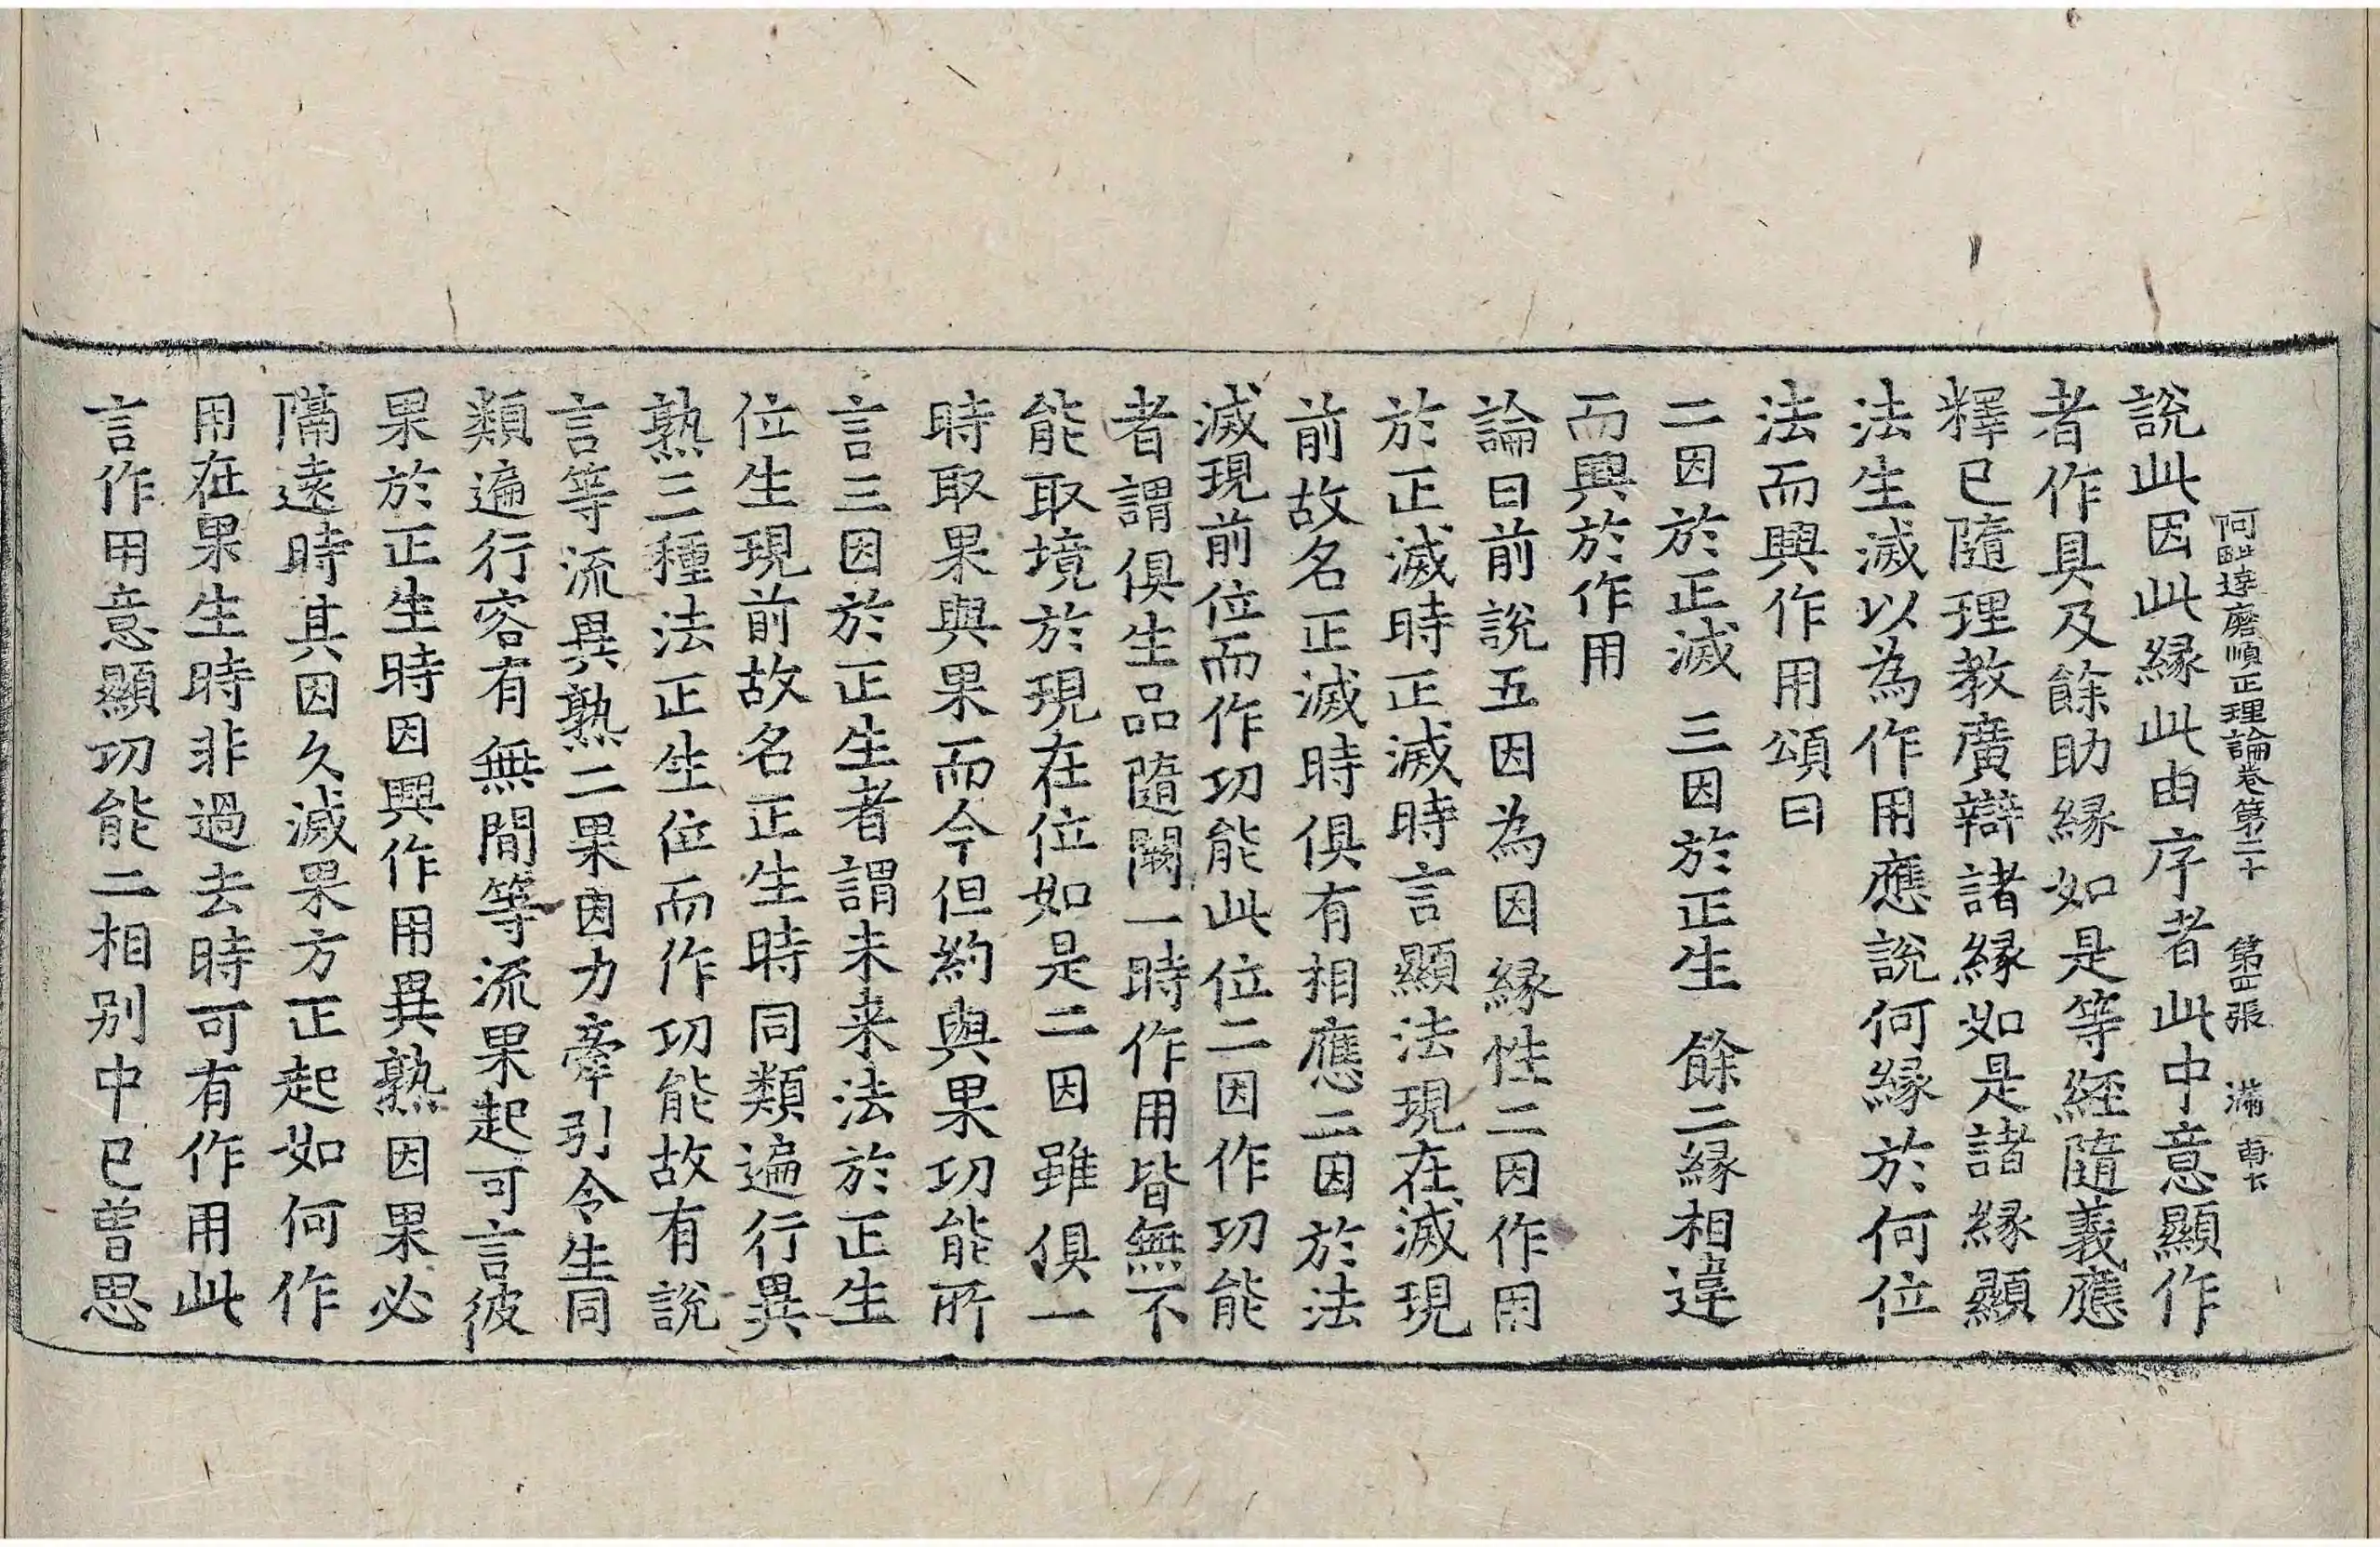 阿毗達磨順正理論卷第二十　第四張　滿
說此因此緣此由序者此中意顯作
者作具及餘助緣如是等經隨義應
釋已隨理教廣辯諸緣如是諸緣顯
法生滅以為作用應說何緣於何位
法而興作用頌曰
二因於正滅　三因於正生　餘二緣相違
而興於作用
論曰前說五因為因緣性二因作用
於正滅時正滅時言顯法現在滅現
前故名正滅時俱有相應二因於法
滅現前位而作功能此位二因作功能
者謂俱生品隨闕一時作用皆無不
能取境於現在位如是二因雖俱一
時取果與果而今但約與果功能所
言三因於正生者謂未来法於正生
位生現前故名正生時同類遍行異
熟三種法正生位而作功能故有說
言等流異熟二果因力牽引令生同
類遍行容有無間等流果起可言彼
果於正生時因興作用異熟因果必
隔遠時其因久滅果方正起如何作
用在果生時非過去時可有作用此
言作用意顯功能二相別中已曾思